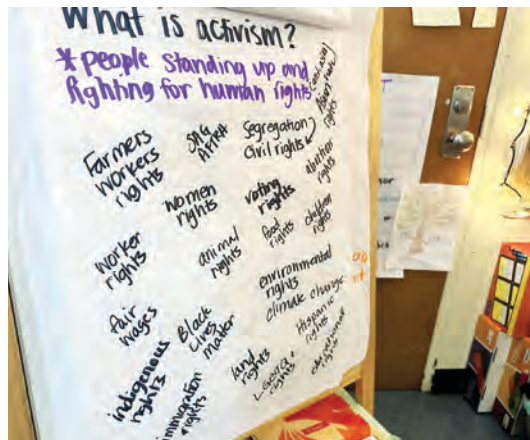 What is activism?
* people standing up and
fighting for human rights
Farmers
workers
rights
SAG
AFTRA
Segregation
civil rights
abortion
rights
women
rights
voting
rights
food
rights
children
rights
worker
rights
animal
rights
environmental
rights
climate change
fair
wages
Black
Lives
matter
Hispanic
rights
land
rights
LGBTQ+
rights
indigenous
rights
immigration
rights
rights
rights